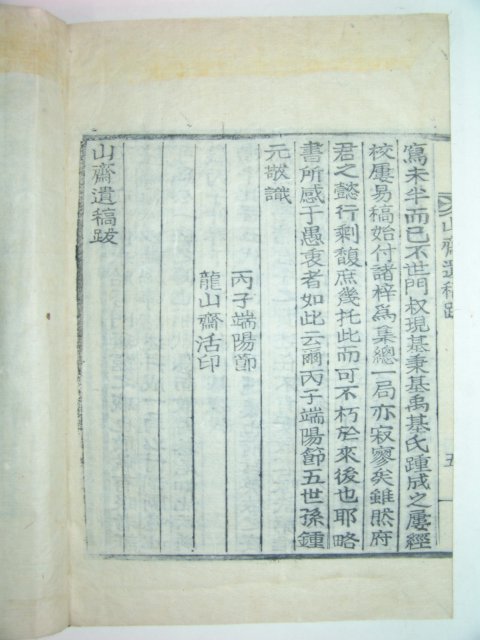 寫未半而已不世門叔現基秉基禹基氏踵成之屢經
校屢易稿始付諸梓爲集總一局亦寂寥矣雖然府
君之懿行剩馥庶幾托此而可不朽於來後也耶略
書所感于愚衷者如此云爾丙子端陽節五世孫鍾
元敬識
丙子端陽節
龍山齋活印
山齋遺稿跋
山齋遺稿跋
五